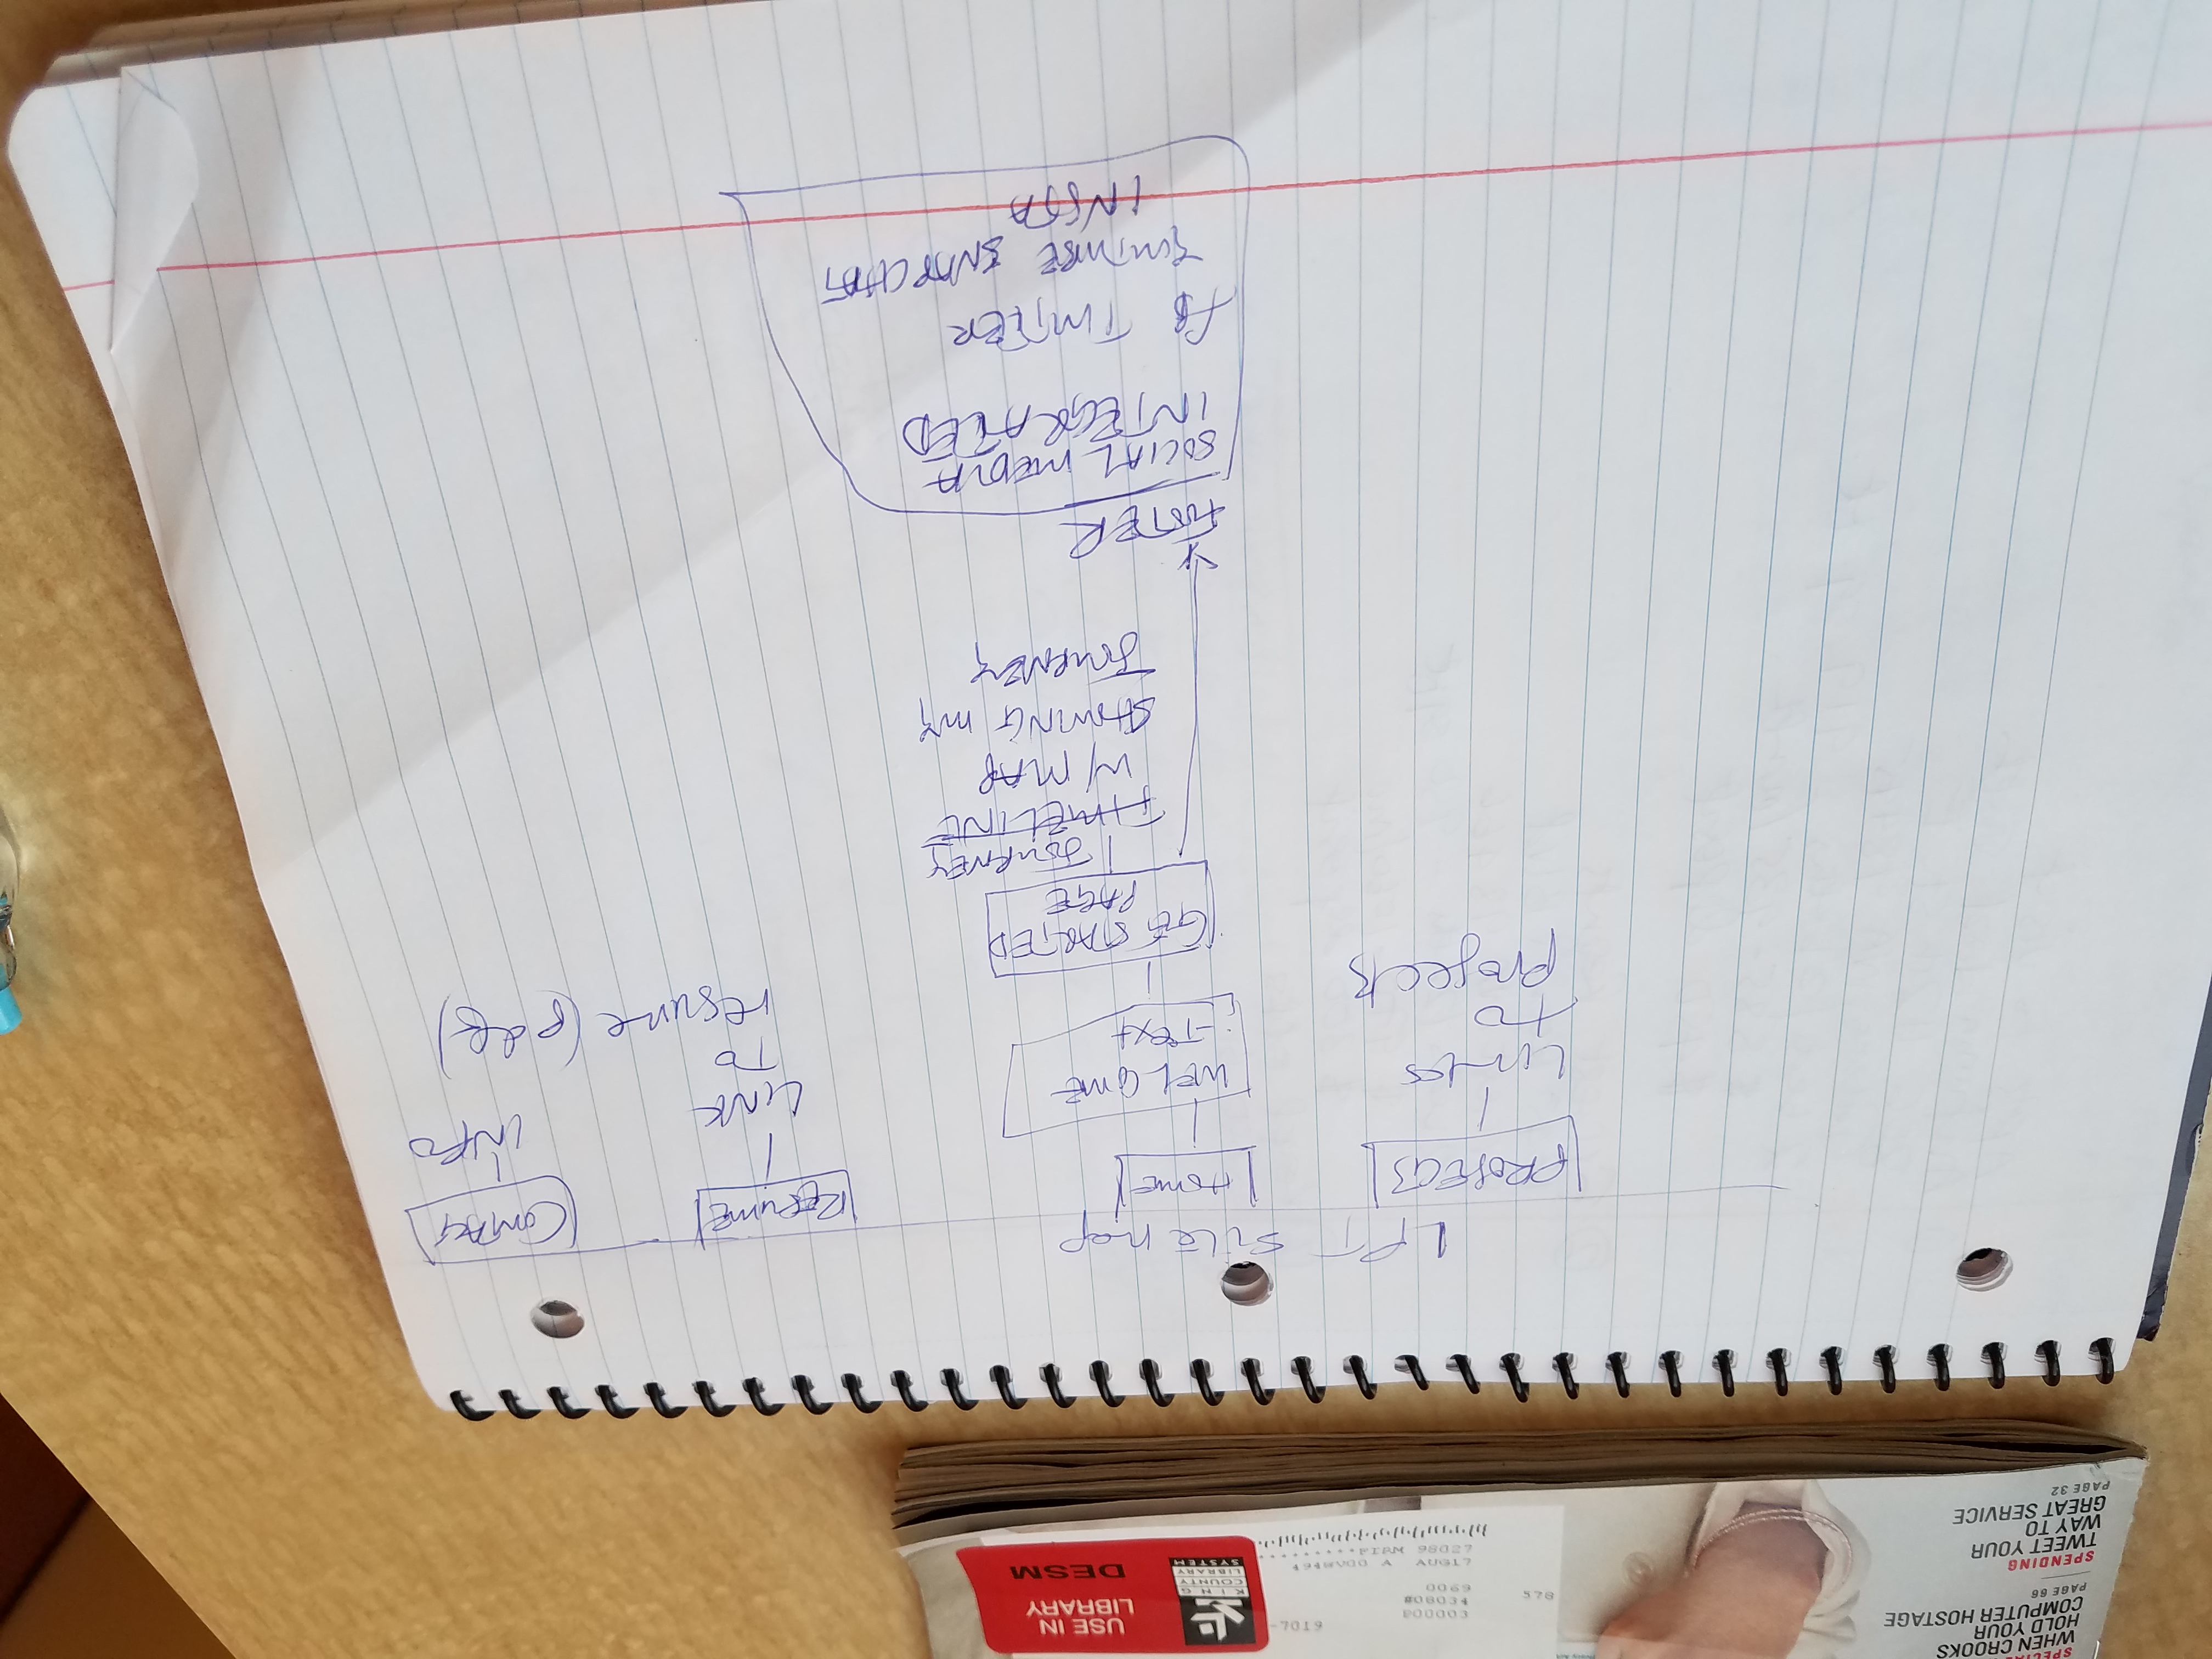 SPECIAL
WHEN CROOKS
HOLD YOUR
COMPUTER HOSTAGE
PAGE 66
SPENDING
TWEET YOUR
WAY TO
GREAT SERVICE
PAGE 32
-7019
P00003
#08034
0069
578
494WVOO A AUG17
98027
KING
COUNTY
LIBRARY
SYSTEM
USE IN
LIBRARY
DESM
LPT site map
PROJECTS
Links
to
projects
HOME
WELCOME
-Text
GET STARTED
PAGE
JOURNEY
TIMELINE
W/ MAP
SHOWING my
JOURNEY
FOOTER
SOCIAL MEDIA
INTEGRATED
fB TWITTER
YOUTUBE SNAPCHAT
INSTA
RESUME
LINK
TO
resume (pdf)
CONTACT
INFO